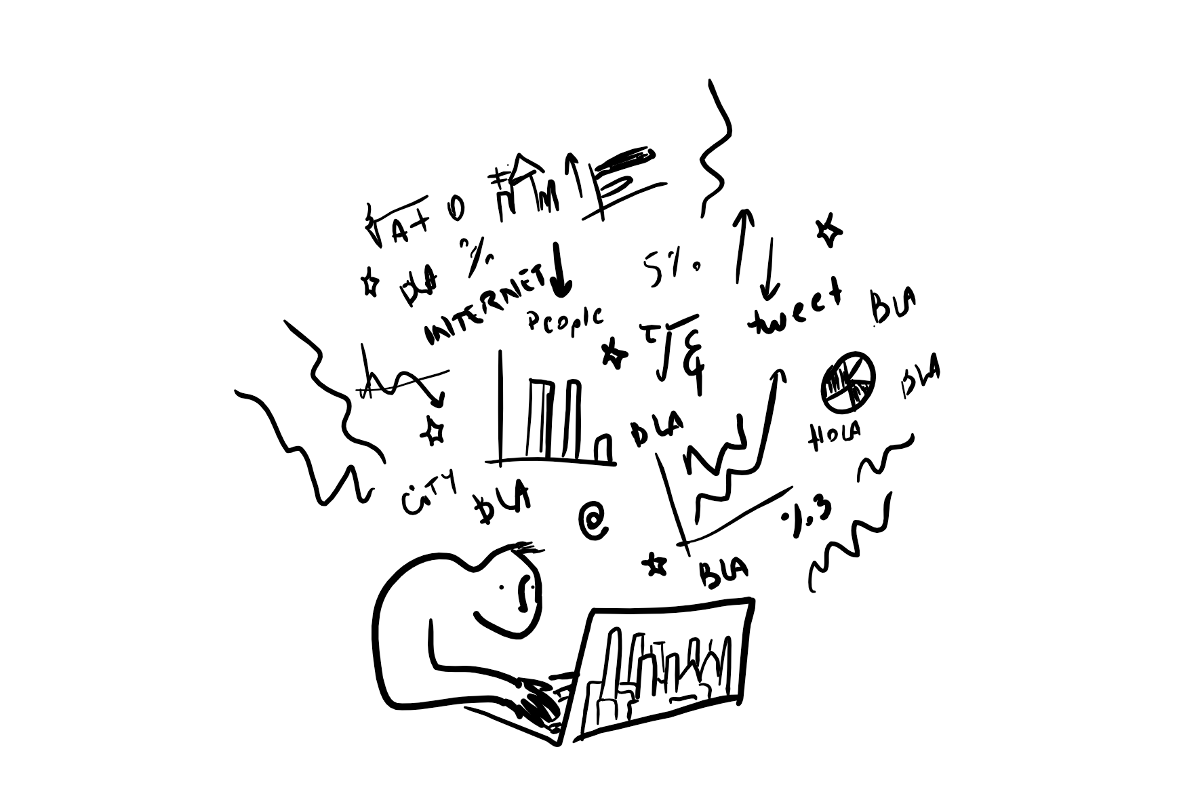 √A+ 0
%
BLA
INTERNET
People
5%
tweet
BLA
BLA
HOLA
BLA
CiTY
BLA
@
%3
BLA